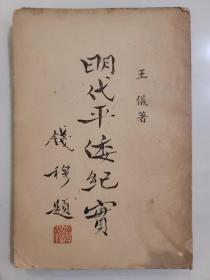 王儀著
明代平倭紀實
錢穆題